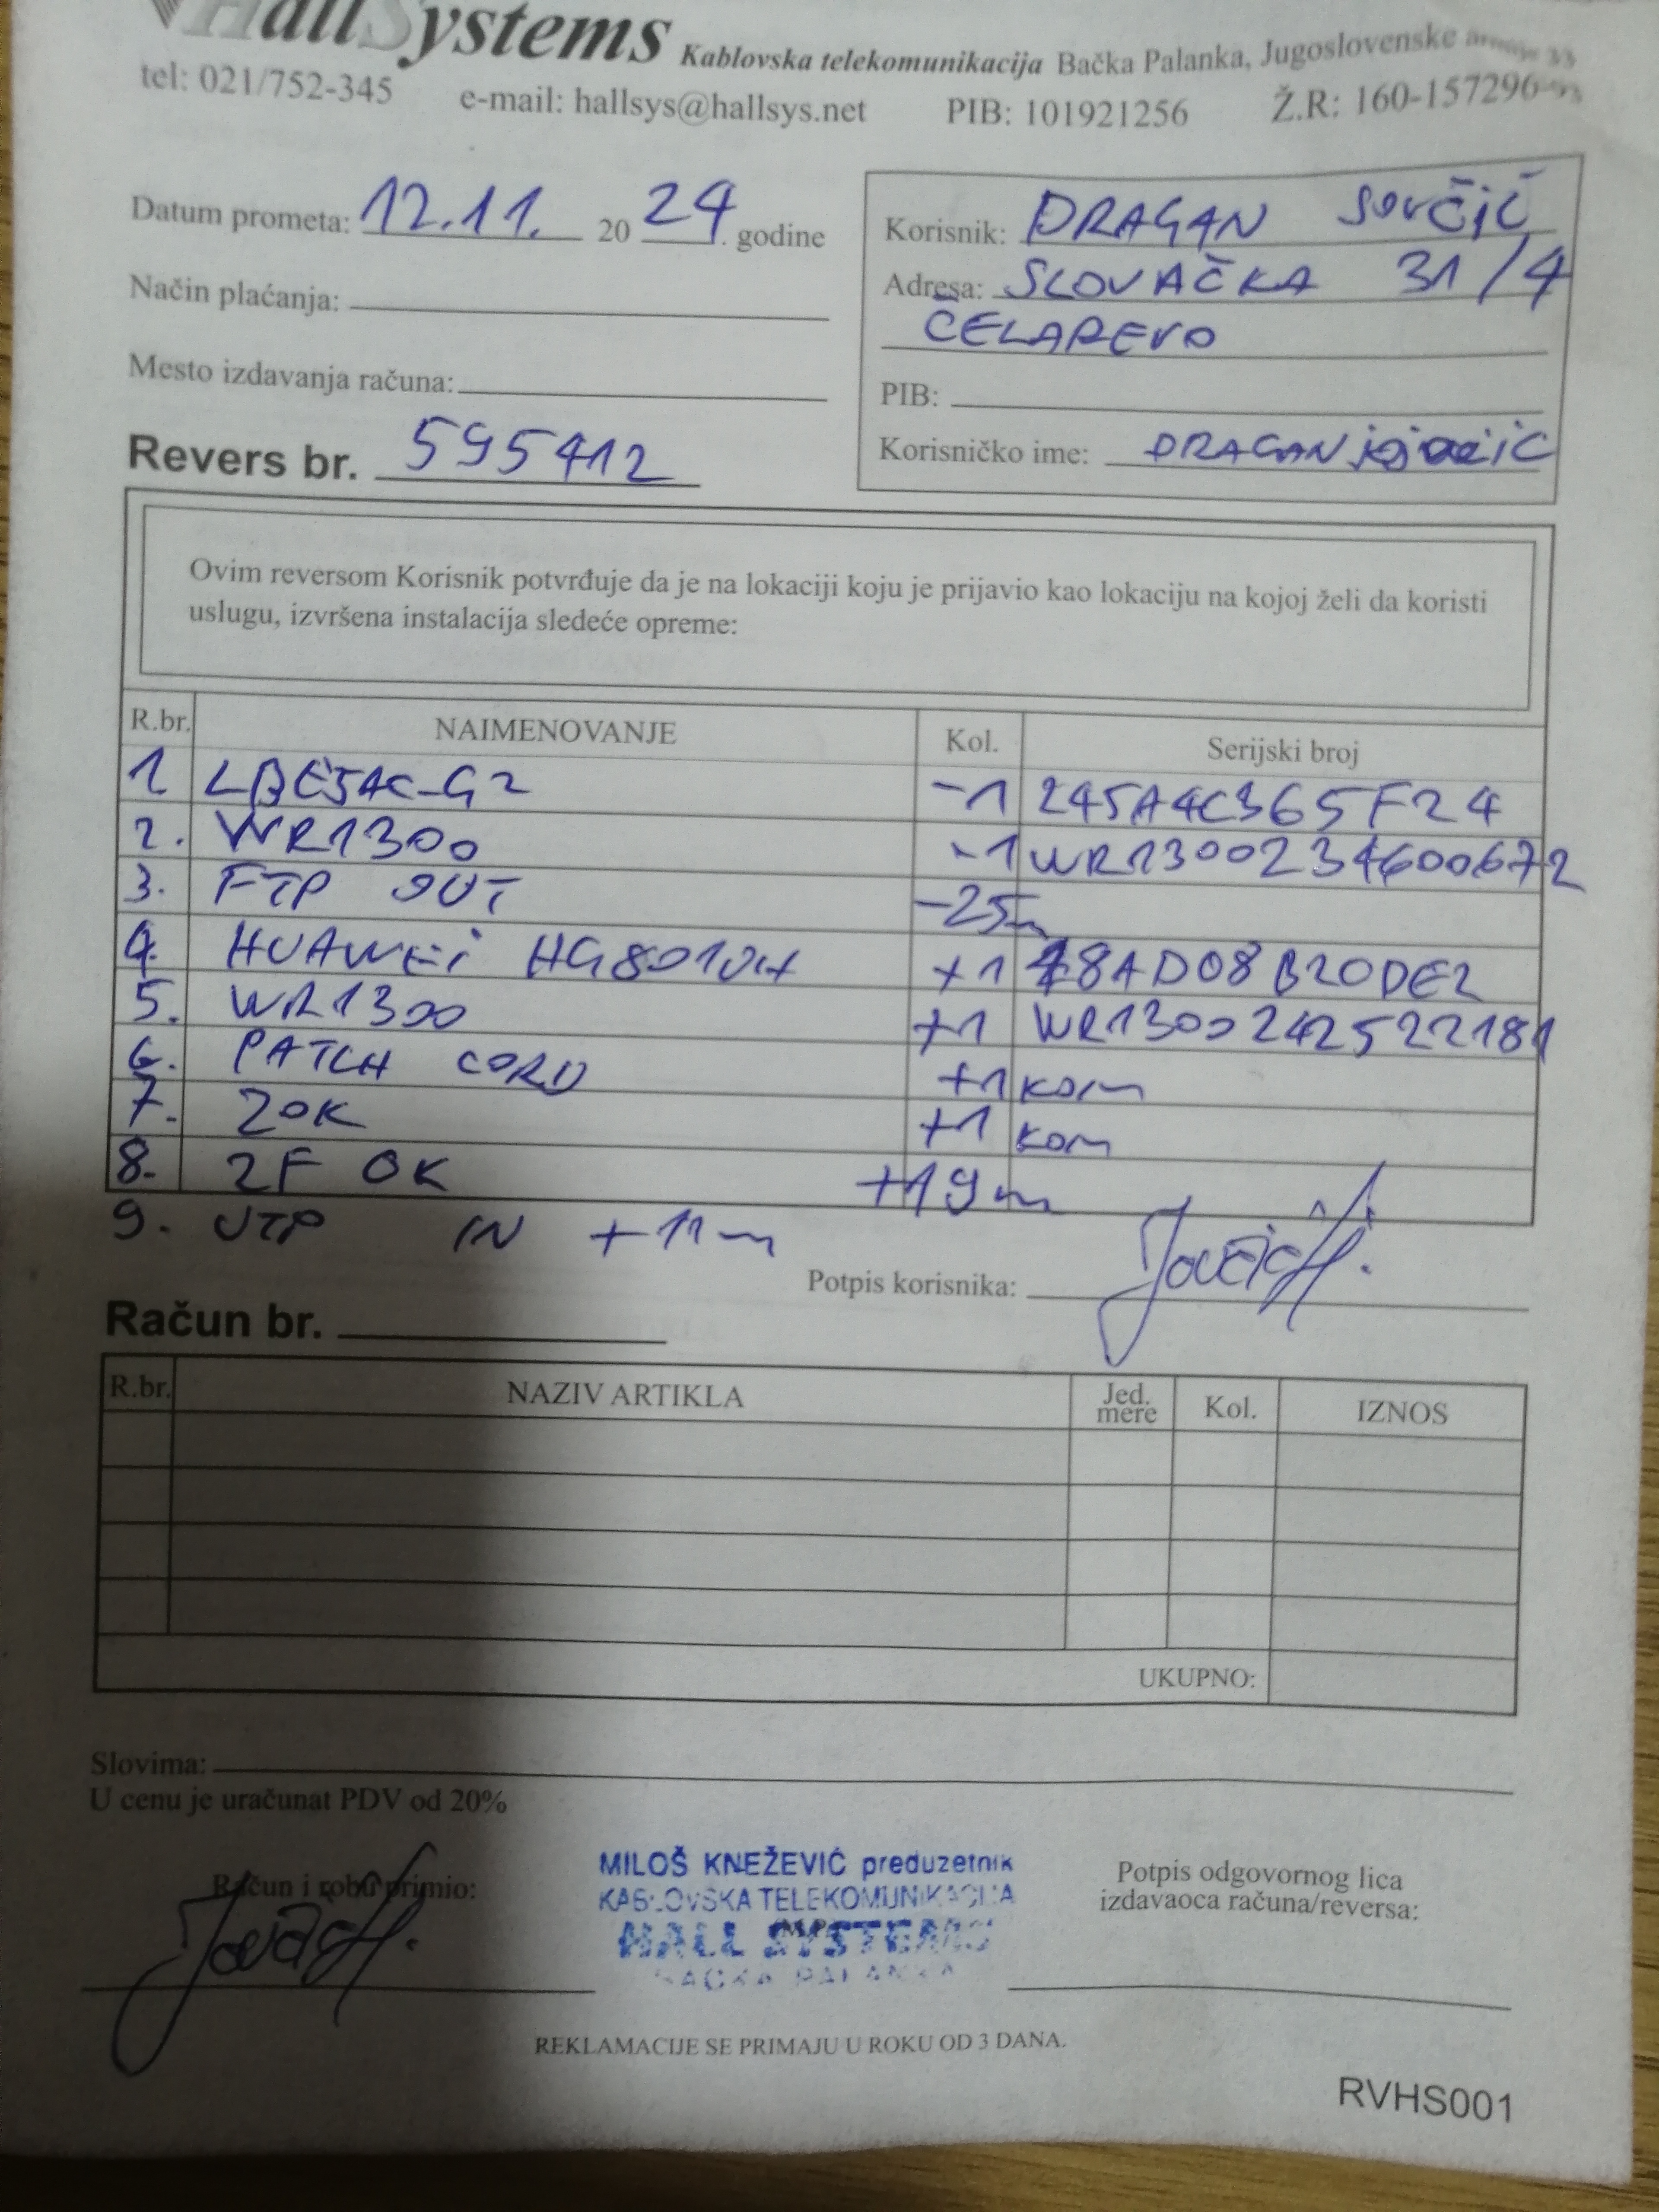 HallSystems Kablovska telekomunikacija Bačka Palanka, Jugoslovenske
tel: 021/752-345 e-mail: hallsys@hallsys.net PIB: 101921256 Ž.R: 160-157296-93
Datum prometa: 12.11. 2024. godine
Način plaćanja:
Mesto izdavanja računa:
Revers br. 595412
Korisnik: DRAGAN JOVČIĆ
Adresa: SLOVAČKA 31/4
ČELAREVO
PIB:
Korisničko ime: DRAGAN
Ovim reversom Korisnik potvrđuje da je na lokaciji koju je prijavio kao lokaciju na kojoj želi da koristi
uslugu, izvršena instalacija sledeće opreme:
R.br. NAIMENOVANJE Kol. Serijski broj
1 LBE5AC-G2 -1 245A4C365F24
2. WR1300 -1 WR1300234600672
3. FTP OUT -25m
4. HUAWEi HG8010H +1 48AD08B20DE2
5. WR1300 +1 WR1300242522181
6. PATCH CORD +1 kom
7. ZOK +1 kom
8. 2F OK +19m
9. UTP IN +11m
Potpis korisnika:
Račun br.
R.br. NAZIV ARTIKLA Jed. mere Kol. IZNOS
UKUPNO:
Slovima:
U cenu je uračunat PDV od 20%
Račun i robu primio:
MILOŠ KNEŽEVIĆ preduzetnik
KABLOVSKA TELEKOMUNIKACIJA
HALL SYSTEMS
BAČKA PALANKA
Potpis odgovornog lica
izdavaoca računa/reversa:
REKLAMACIJE SE PRIMAJU U ROKU OD 3 DANA.
RVHS001